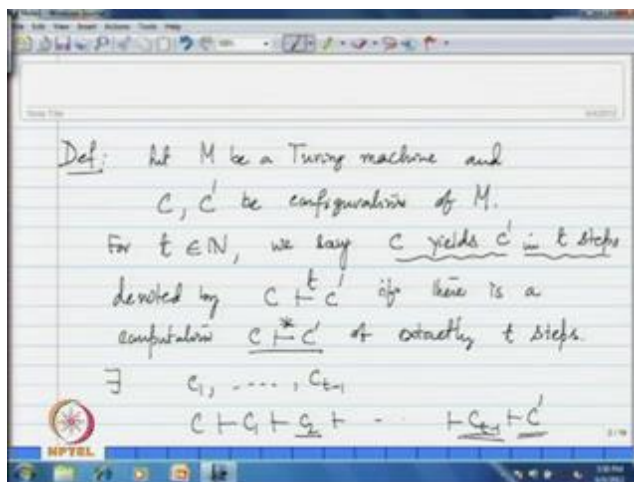 Def: Let M be a Turing machine and
C, C' be configurations of M.
For t ∈ ℕ, we say C yields C' in t steps
denoted by C ⊢ᵗ C' if there is a
computation C ⊢* C' of exactly t steps.
∃ C₁, ...., Cₜ₋₁
C ⊢ C₁ ⊢ C₂ ⊢ ... ⊢ Cₜ₋₁ ⊢ C'
NPTEL